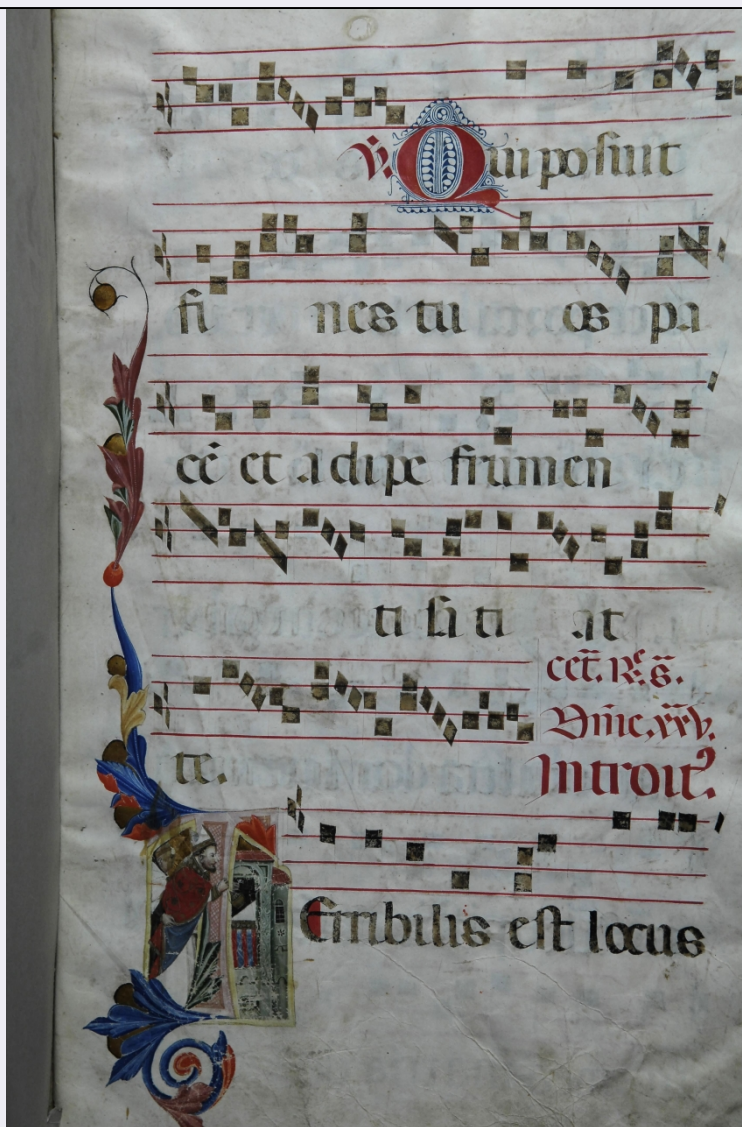 ℣. Qui posuit
fi nes tu os pa
cē et adipe frumen
ti sa ti at
te.
Introitꝰ.
Terribilis est locus